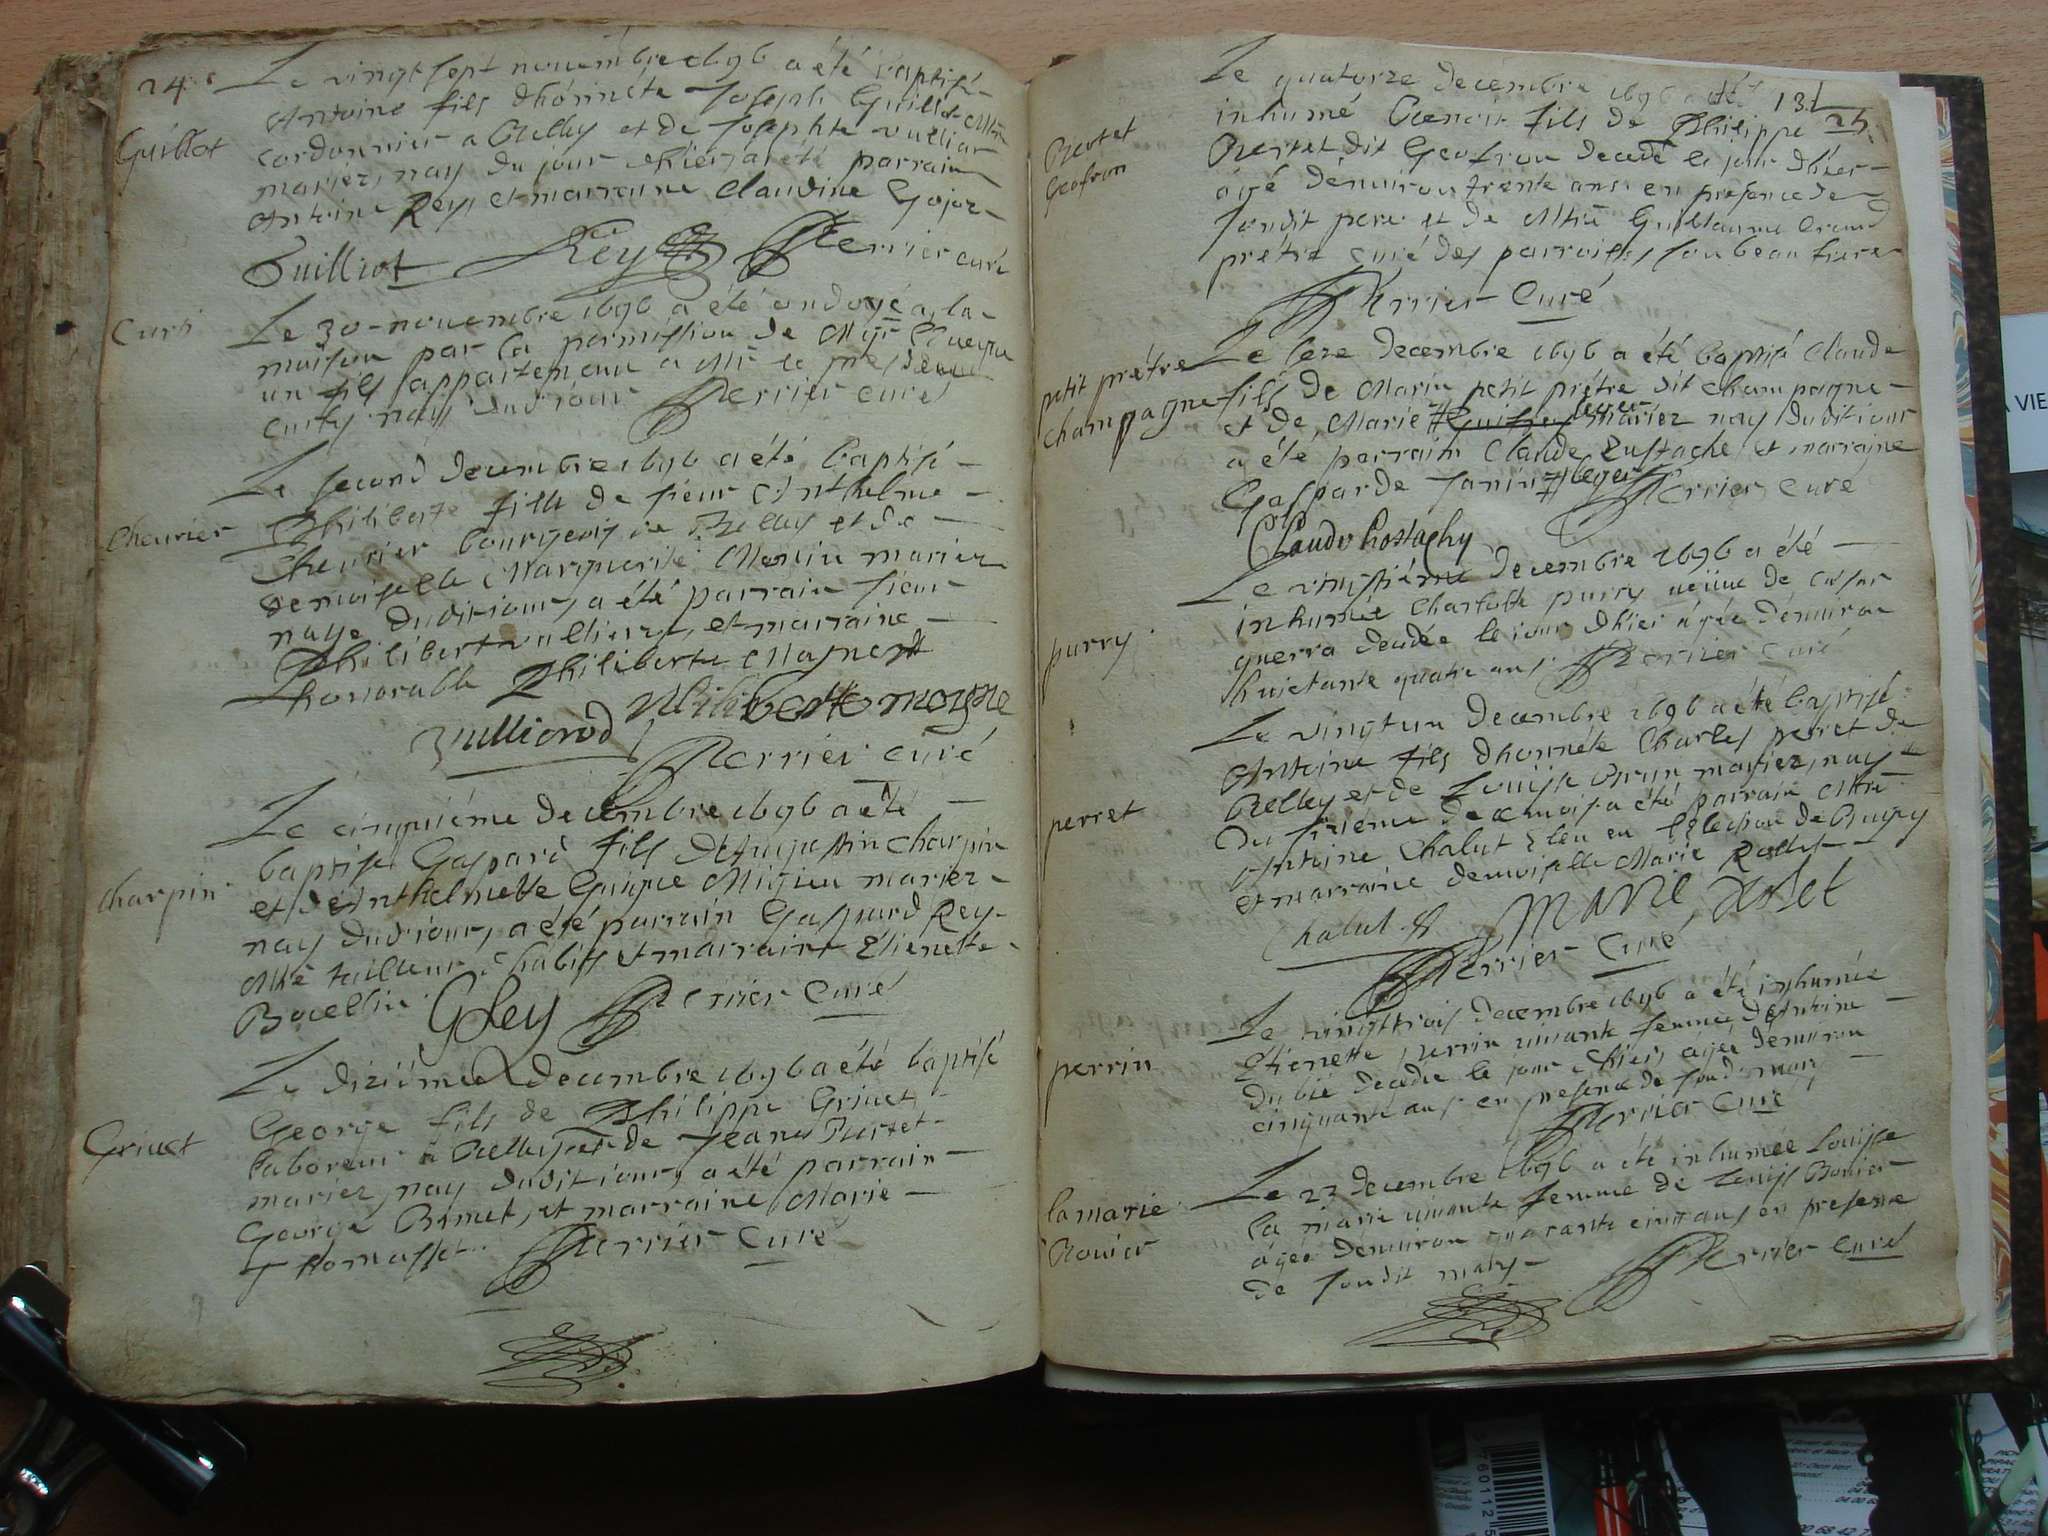 24.e
Le vingt sept nouembre 1696 a été baptisé
Antoine fils dhonnéte Joseph Guilliot Mtre
Guillot
cordonnier a Belley et de Josephte vulliar
mariéz, nay du jour dhier, a été parrain
Antoine Rey, et marraine Claudine Gojoz
Guilliot Rey Perrier curé
Curti
Le 30 nouembre 1696 a été ondoyé a la
maison par la permission de Mgr L'eueque
un fils appartenant a Mr le president
curty nay dudit jour Perrier curé
Le second decembre 1696 a été baptisé
Philiberte fille de sieur Anthelme
Cheurier
Cheurier bourgeois de Belley et de
demoiselle Marguerite Monin mariez
naye dudit jour, a été parrain sieur
Philibert vullierod, et marraine
honorable Philiberte Moyne
vullierod philiberte moyne
Perrier curé
Le cinquiéme decembre 1696 a été
baptisé Gaspard fils d'Augustin Charpin
charpin
et d'Anthelmette Guigue Migieu mariez
nay dudit jour, a été parrain Gaspard Rey
Mtre tailleur d'habits et marraine Etienette
Bouellin GRey Perrier Curé
Le diziéme decembre 1696 a été baptisé
George fils de Philippe Griuet
Griuet
laboreur a Belley et de Jeane Burtet
mariez, nay dudit jour, a été parrain
George Bornet, et marraine Marie
Thomasset Perrier Curé
Le quatorze decembre 1696 a été 131
inhumé Benoit fils de Philippe 25.
Bertet
Geofron
Bertet dit Geofron decedé le jour dhier
agé d'enuiron trente ans en presence de
sondit pere et de Mtre Guillaume
prétre curé des parroisses son beau frere
Perrier Curé
petit prétre
champagne
Le seze decembre 1696 a été baptisé Claude
fils de Marin petit prétre dit champagne
et de Marie # leger mariez nay dudit jour
a été parrain Claude Eustache et marraine
Gasparde Janin # leger Perrier Curé
Claude Hostachy
Le vingtiéme decembre 1696 a été
purry
inhumée Charlotte purry veuue de Cesar
guerra decedée le jour dhier agée d'enuiron
huictante quatre ans Perrier Curé
Le vingt un decembre 1696 a été baptisé
perret
Antoine fils dhonnéte Charles perret de
Belley et de Louise Brun mariez, nay
du sizieme de ce mois a été parrain Mtre
Antoine Chalut Eleu en l'Election de Bugey
et marraine demoiselle Marie Rollet
Chalut Marie Rolet
Perrier Curé
Le vingttrois decembre 1696 a été inhumée
perrin
Etienette perrin viuante femme d'Antoine
Dubié decedée le jour dhier, agée denuiron
cinquante ans en presence de sondt mary
Perrier Curé
Le 23 decembre 1696 a été inhumée Louise
la marie
Bouier
la marie viuante femme de Louis Bouier
agée denuiron quarante cinq ans en presence
de sondit mary Perrier Curé